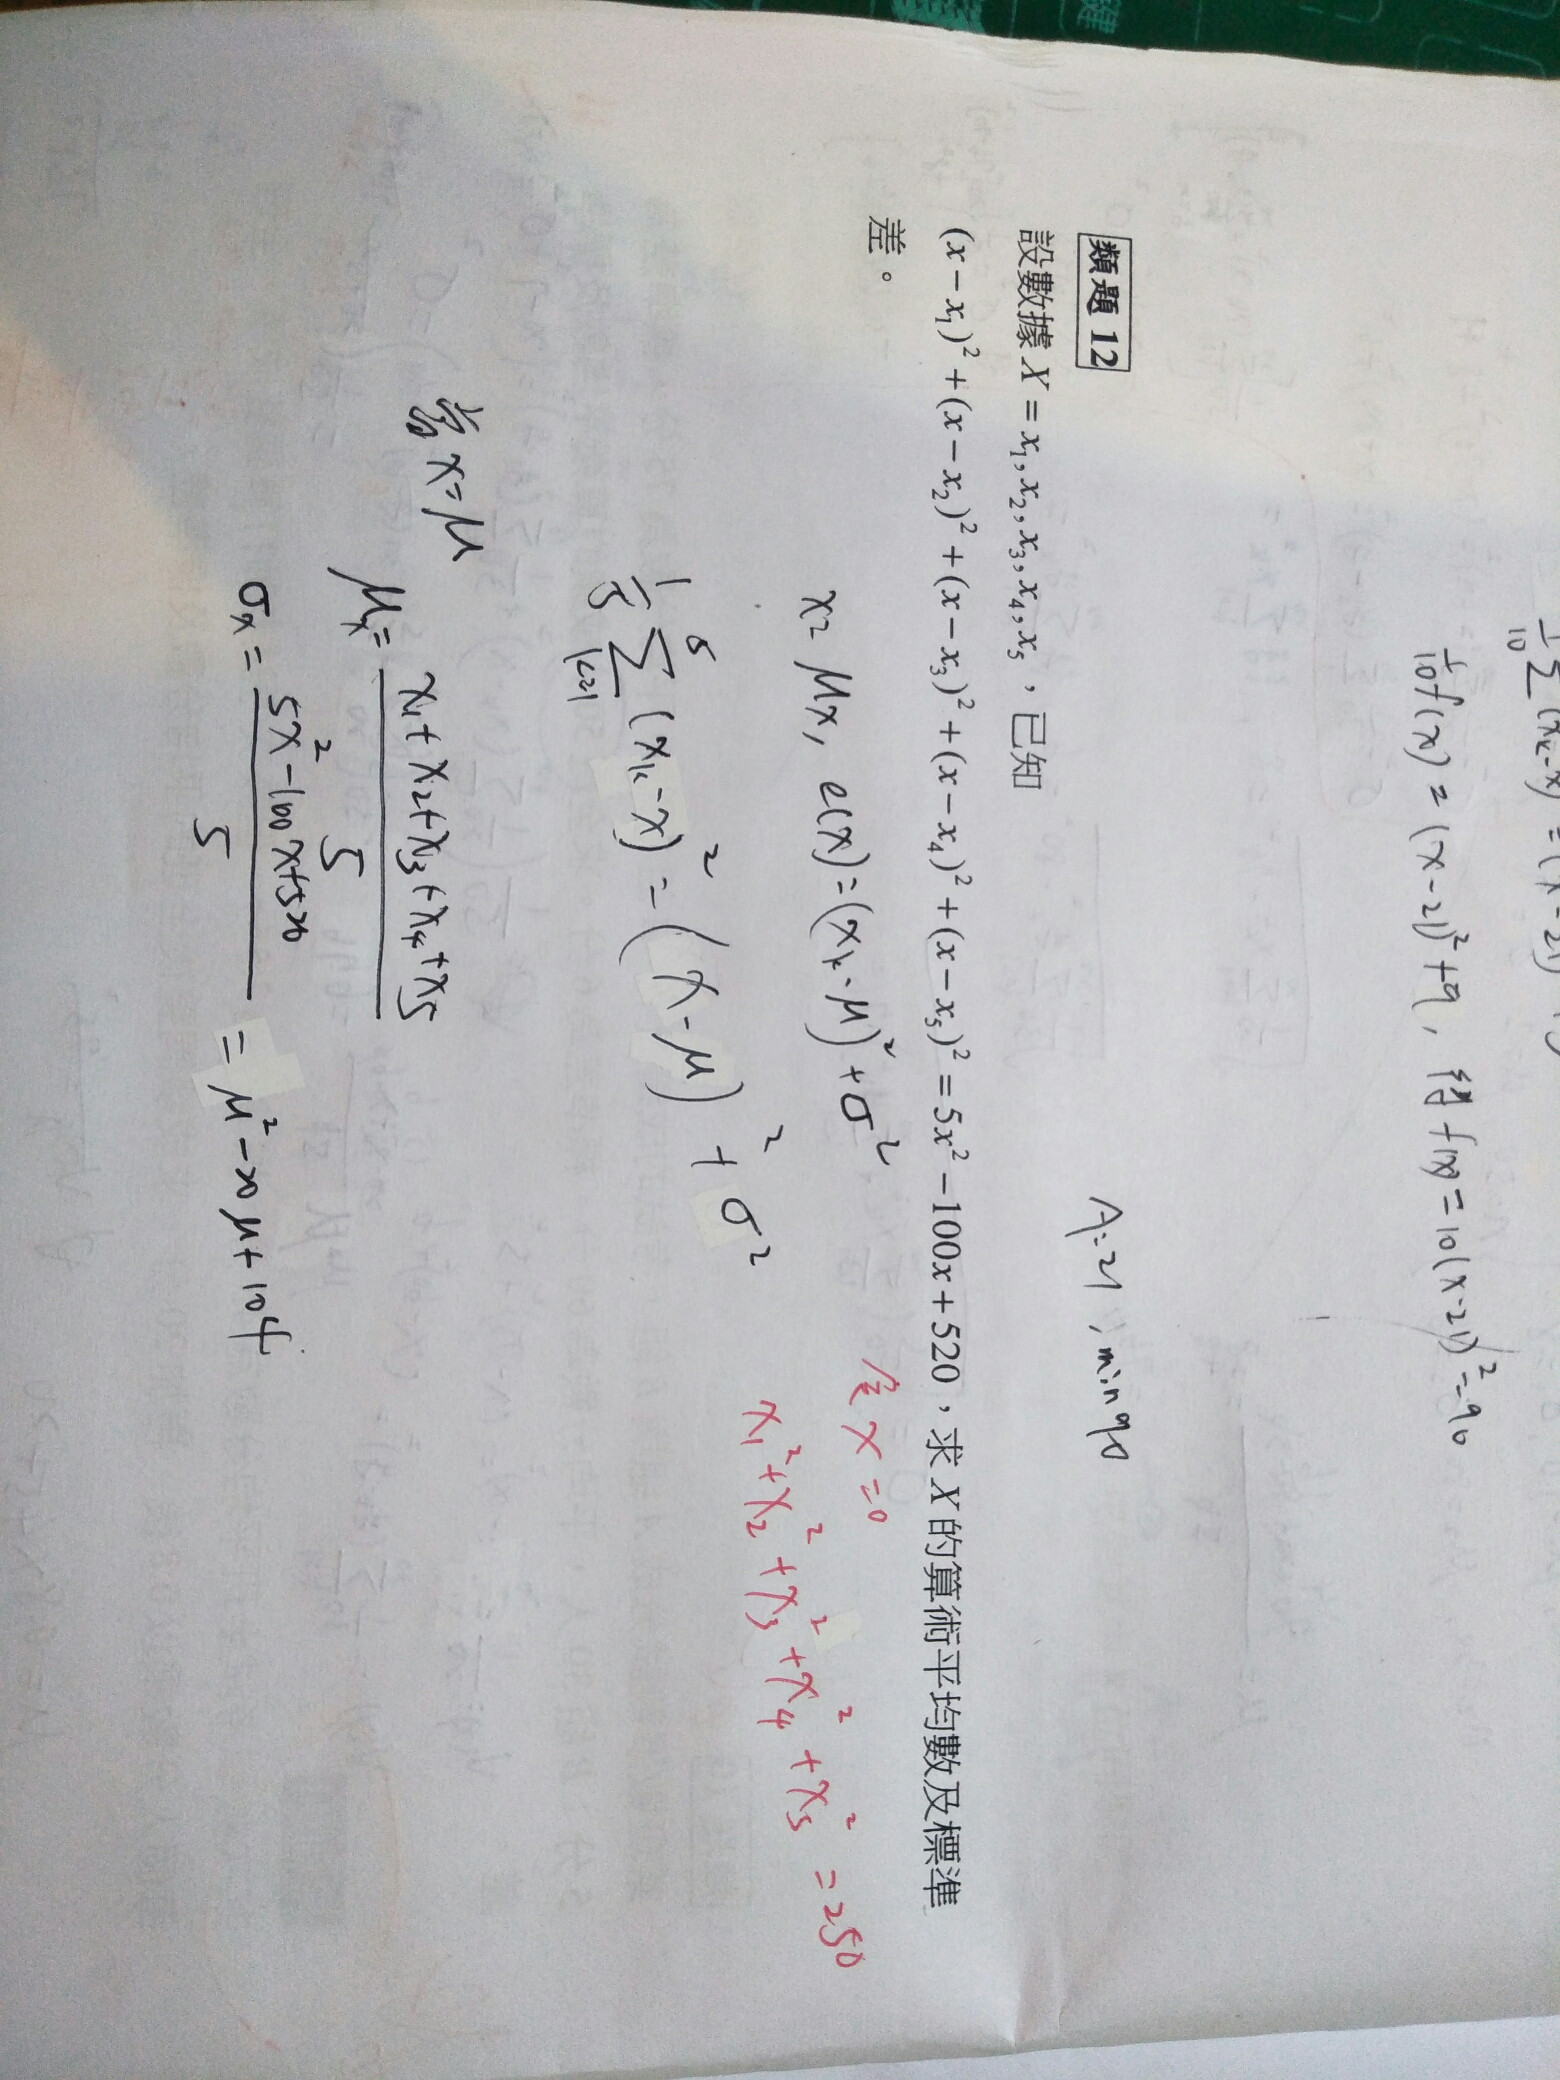 (x-21)
1/10 f(x) = (x-21)²+9, 得 f(x) = 10(x-21)²=90
A=21, min 90
類題 12
設數據 X = x₁, x₂, x₃, x₄, x₅，已知
(x-x₁)²+(x-x₂)²+(x-x₃)²+(x-x₄)²+(x-x₅)²=5x²-100x+520，求 X 的算術平均數及標準
差。
x=μx, e(x)=(xₖ-μ)²+σ²
x=0
x₁²+x₂²+x₃²+x₄²+x₅²=250
1/5 Σ(k=1→5) (xₖ-x)²=(x-μ)²+σ²
當 x=μ
μx = (x₁+x₂+x₃+x₄+x₅)/5
σx = (5x²-100x+520)/5 = μ²-20μ+104